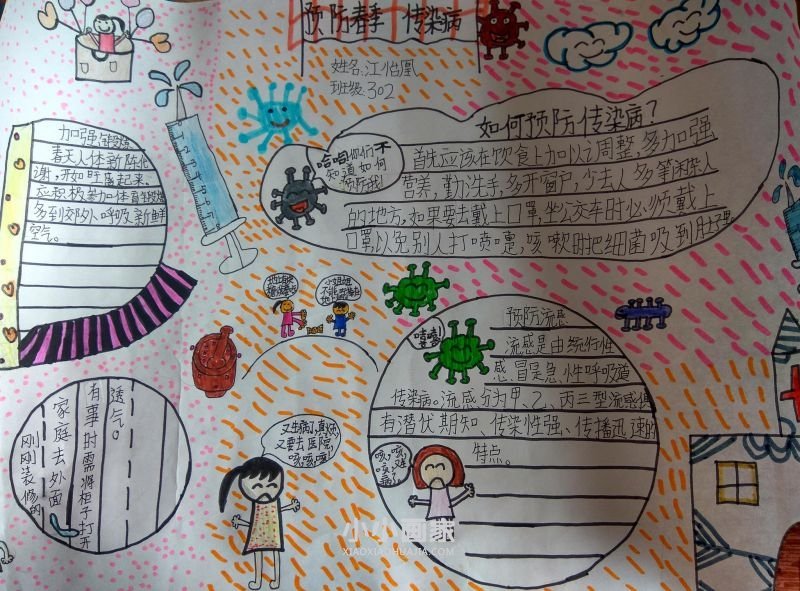 预防春季 传染病
姓名:江怡凰
班级:302
加强锻炼
春天人体新陈代
谢,开始旺盛起来.
应积极参加体育锻炼
多到郊外呼吸新鲜
空气。
如何预防传染病?
首先应该在饮食上加以调整,多加强
营养,勤洗手,多开窗户,少去人多笔闲杂人
的地方,如果要去戴上口罩,坐公交车时必须戴上
口罩以免别人打喷嚏,咳嗽时把细菌吸到肚子里
哈哈他们不
知道如何
预防我!
小姐姐
不能
地上
嘻嘻!
预防流感
流感是由统行性
感冒是急性呼吸道
传染病。流感分为甲、乙、丙三型流感俱
有潜伏期知、传染性强、传播迅速的
特点。
又生病,真
又要去医院,
咳咳咳!
咳,咳,
咳,难
透气。
有事时需将柜子打开
家庭去外面
刚刚装修的
小小画家
XIAOXIAOHUAJIA.COM